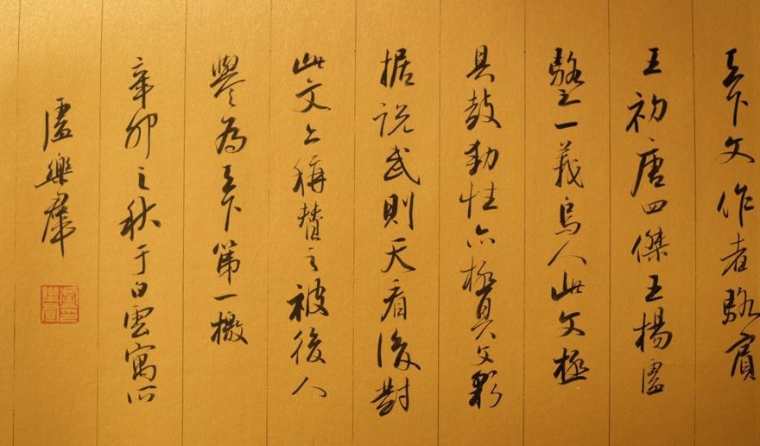 天下文作者駱賓
王初唐四傑王楊盧
駱之一義烏人此文極
具鼓動性亦極具文彩
据说武則天看後對
此文稱賛之被後人
譽為天下第一檄
辛卯之秋于白雲寓所
盧樂群